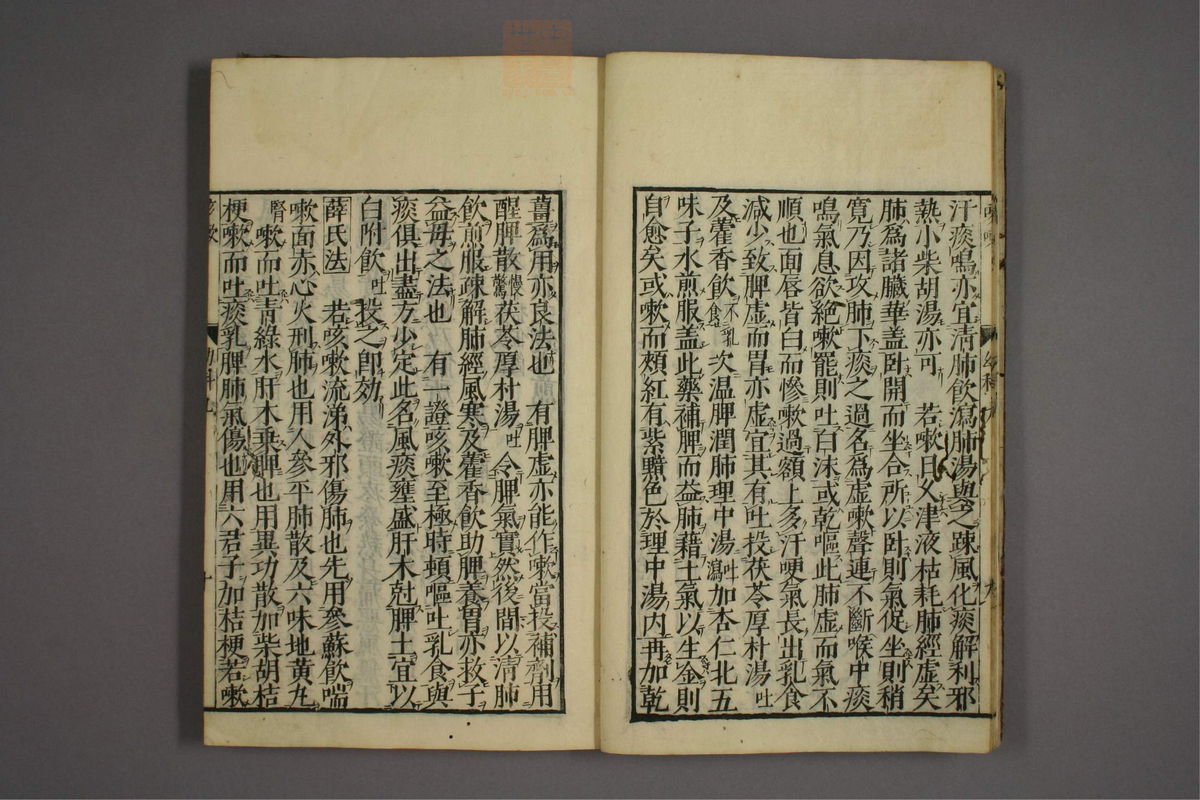 汗痰鳴亦宜清肺飲瀉肺湯與之疎風化痰解利邪
熱小柴胡湯亦可　若嗽日久津液枯耗肺經虛矣
肺爲諸臟華蓋卧開而坐合所以卧則氣促坐則稍
寬乃因攻肺下痰之過名爲虛嗽聲連不斷喉中痰
鳴氣息欲絶嗽罷則吐白沫或乾嘔此肺虛而氣不
順也面唇皆白而慘嗽過額上多汗哽氣長出乳食
減少致脾虛而胃亦虛宜其有吐投茯苓厚朴湯吐
及藿香飲不乳食次温脾潤肺理中湯吐瀉加杏仁北五
味子水煎服盖此藥補脾而益肺藉土氣以生金則
自愈矣或嗽而頰紅有紫黶色於理中湯内再加乾
薑爲用亦良法也　有脾虛亦能作嗽當投補劑用
醒脾散慢驚茯苓厚朴湯吐　令脾氣實然後間以清肺
飲煎服疎解肺經風寒及藿香飲助脾養胃亦救子
益母之法也　有一證咳嗽至極時頓嘔吐乳食與
痰俱出盡方少定此名風痰壅盛肝木尅脾土宜以
白附飲吐投之即効
薛氏法　若咳嗽流涕外邪傷肺也先用參蘇飲喘
嗽面赤心火刑肺也用人參平肺散及六味地黄丸
腎　嗽而吐青綠水肝木乘脾也用異功散加柴胡桔
梗嗽而吐痰乳脾肺氣傷也用六君子加桔梗若嗽
咳嗽
幼科九